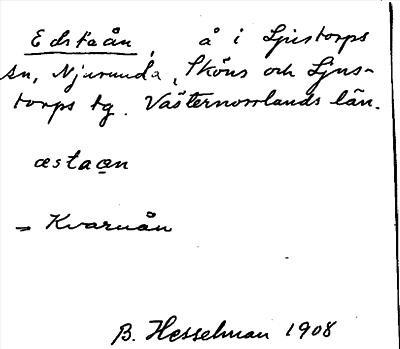 Edstaån, å i Ljustorps
sn, Njurunda, Sköns och Ljus-
torps tg. Västernorrlands län.
æstaan
= Kvarnån
B. Hesselman 1908